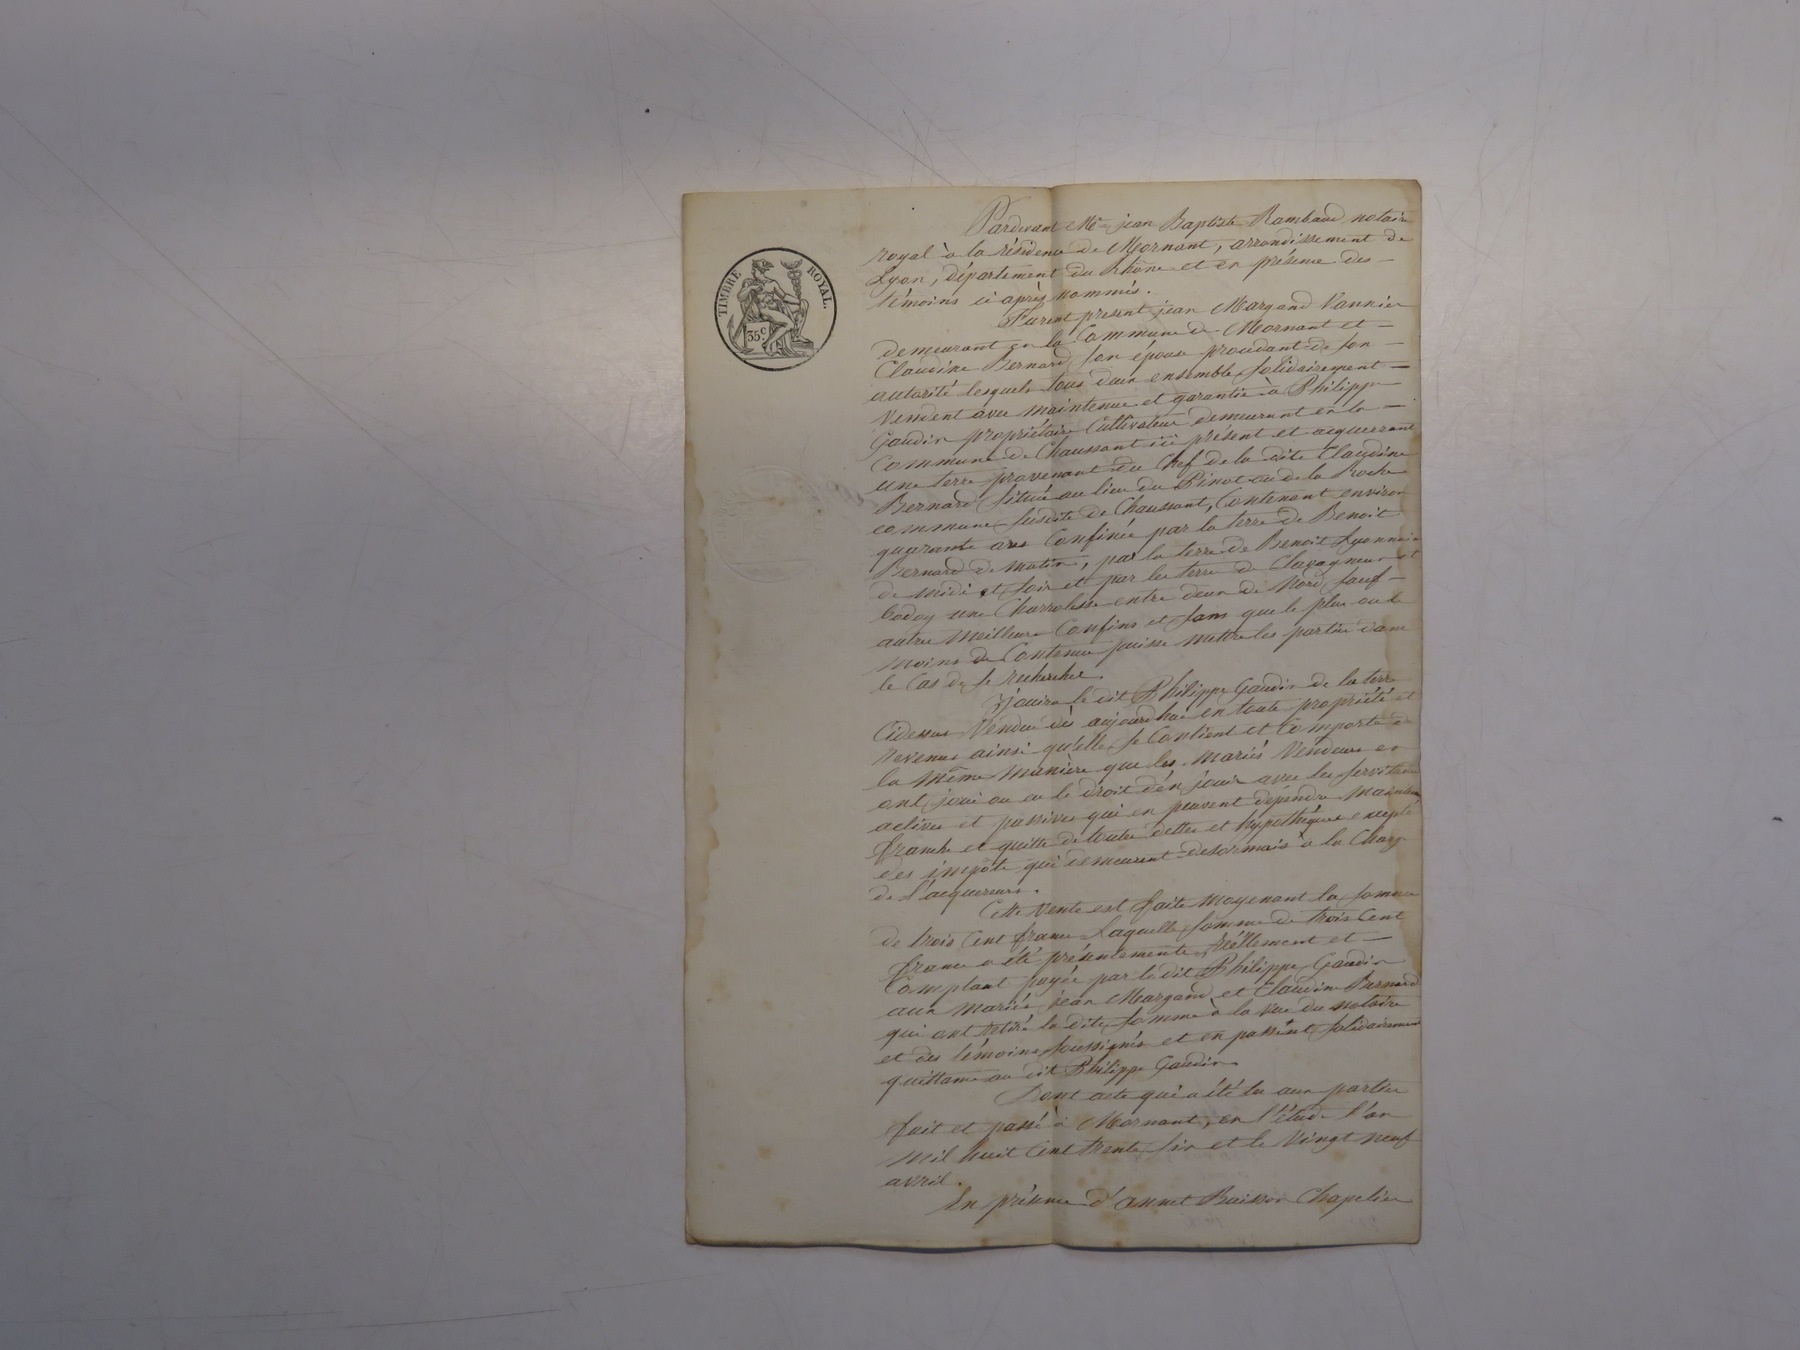 TIMBRE ROYAL.
35 c.
Pardevant Me jean Baptiste Rambaud notaire
royal à la résidence de Mornant, arrondissement de
Lyon, département du Rhône et en présence des
témoins ci après nommés.
Furent present jean Margand Vannier
demeurant en la Commune de Mornant et
Claudine Bernard son épouse procédant de son
autorité lesquels tous deux ensemble solidairement
Vendent avec maintenue et garantie à Philippe
Gaudin propriétaire Cultivateur demeurant en la
Commune de Chaussant ici présent et acquerrant
une terre provenant du Chef de la dite Claudine
Bernard située au lieu du Pinot ou de la Roche
commune susdite de Chaussant, Contenant environ
quarante ares Confinée par la terre de Benoit
Bernard de matin, par la terre de Benoit Lyonnais
de midi et soir et par les terre de Clavagneux et
une Charrolesse entre deux de Nord, sauf
autre Meilleure Confins et sans que le plus ou le
moins de Contenue puisse mettre les partie dans
le Cas de se rechercher.
Jouira le dit Philippe Gaudin de la terre
Cidessus Vendue dès aujourdhui en toute propriété et
revenus ainsi qu'elle se Contient et Comporte de
la même manière que les mariés Vendeurs en
ont joui ou eu le droit d'en jouir avec les servitude
actives et passives qui en peuvent dépendre
franche et quitte de toutes dettes et hypothèques excepté
des impôts qui demeurent desormais à la Charge
de l'acquereur.
Cette Vente est faite moyenant la somme
de trois Cent francs Laquelle somme de trois Cent
francs a été présentement réellement et
Comptant payée par le dit Philippe Gaudin
aux mariés jean Margand et Claudine Bernard
qui ont retiré la dite somme à la vue du notaire
et des témoins soussignés et en passent solidairement
quittance au dit Philippe Gaudin
Dont acte qui a été lu aux parties
fait et passé à Mornant, en l'étude l'an
mil huit Cent trente six et le Vingt neuf
avril.
En présence d'annet Buisson Chapelier